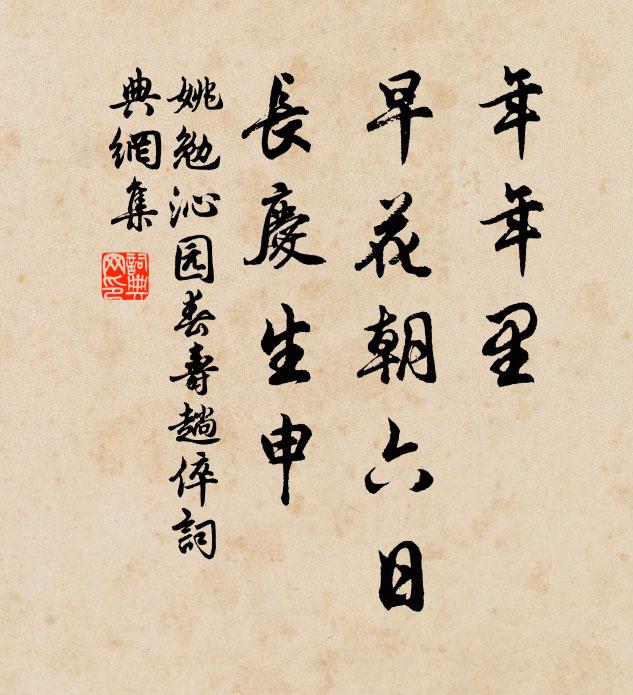 年年里
早花朝六日
長慶生申
姚勉沁园春壽趙倅詞
典網集
詞典
网印